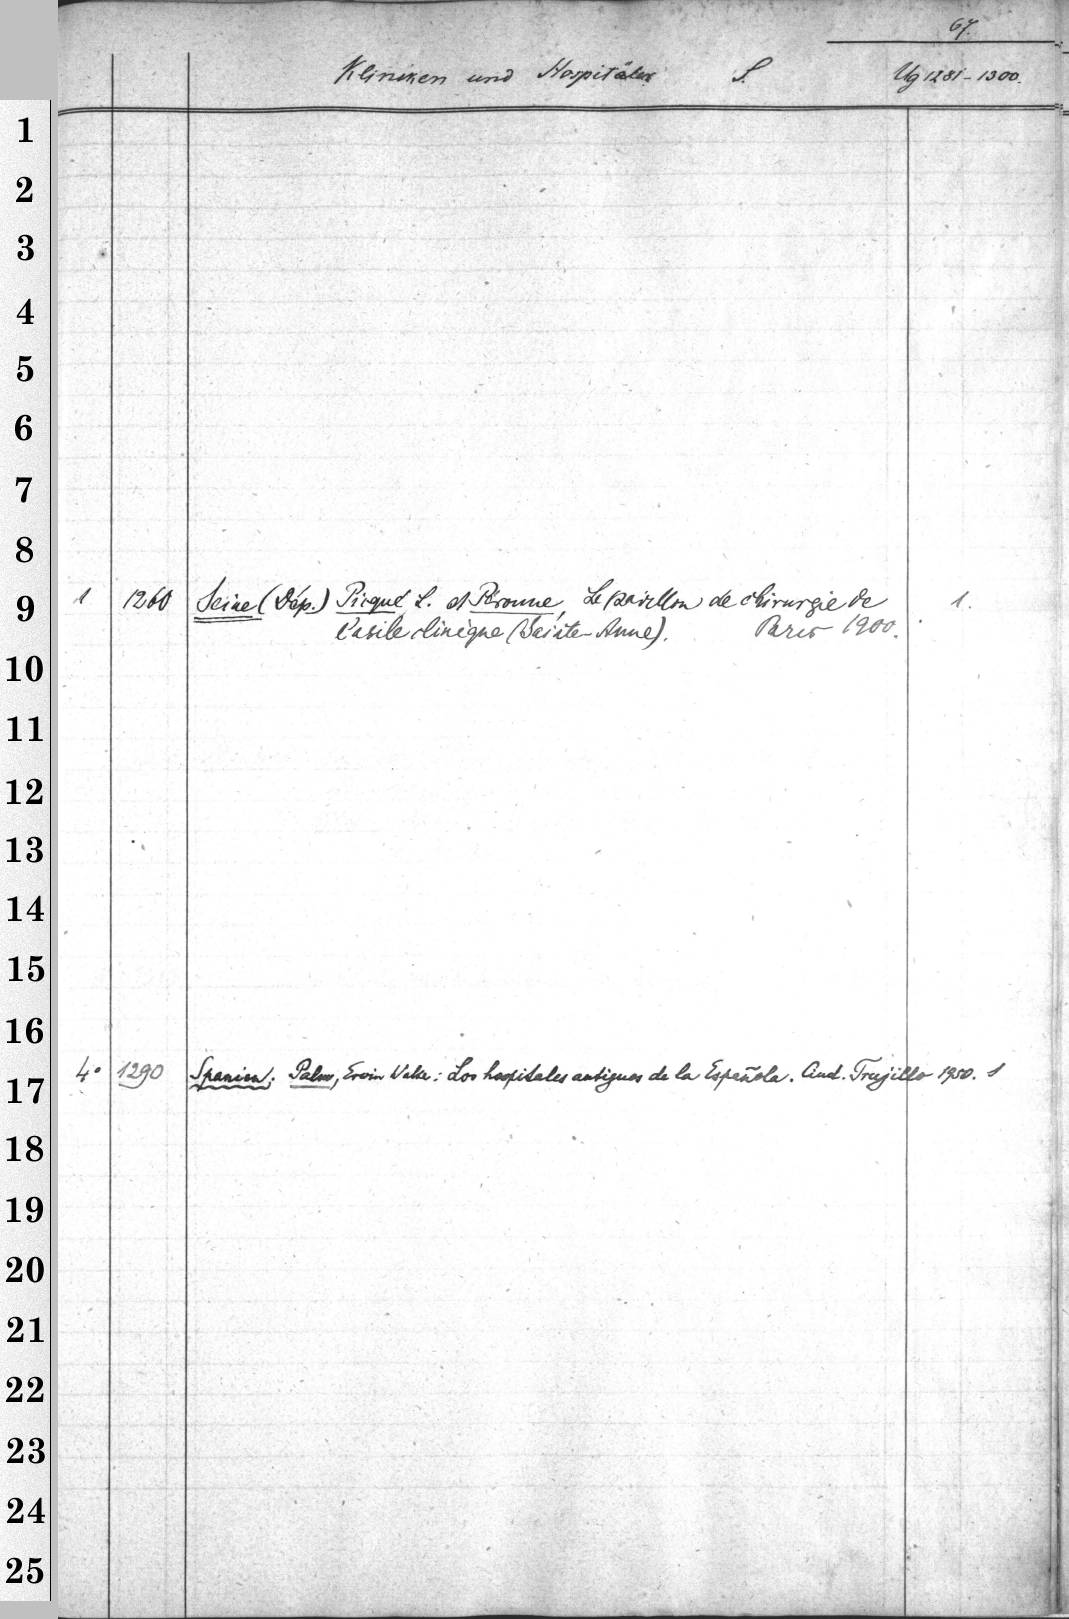 67.
Kliniken und Hospitäler S. Ug 1281-1300.
1
2
3
4
5
6
7
8
9 1 1260 Seine (Dép.) Picqué, L. et Péronne, Le pavillon de chirurgie de 1.
l'asile clinique (Sainte-Anne). Paris 1900.
10
11
12
13
14
15
16
17 4° 1290 Spanien. Palm, Erwin Walter: Los hospitales antiguos de la Española. Ciud. Trujillo 1950. 1
18
19
20
21
22
23
24
25